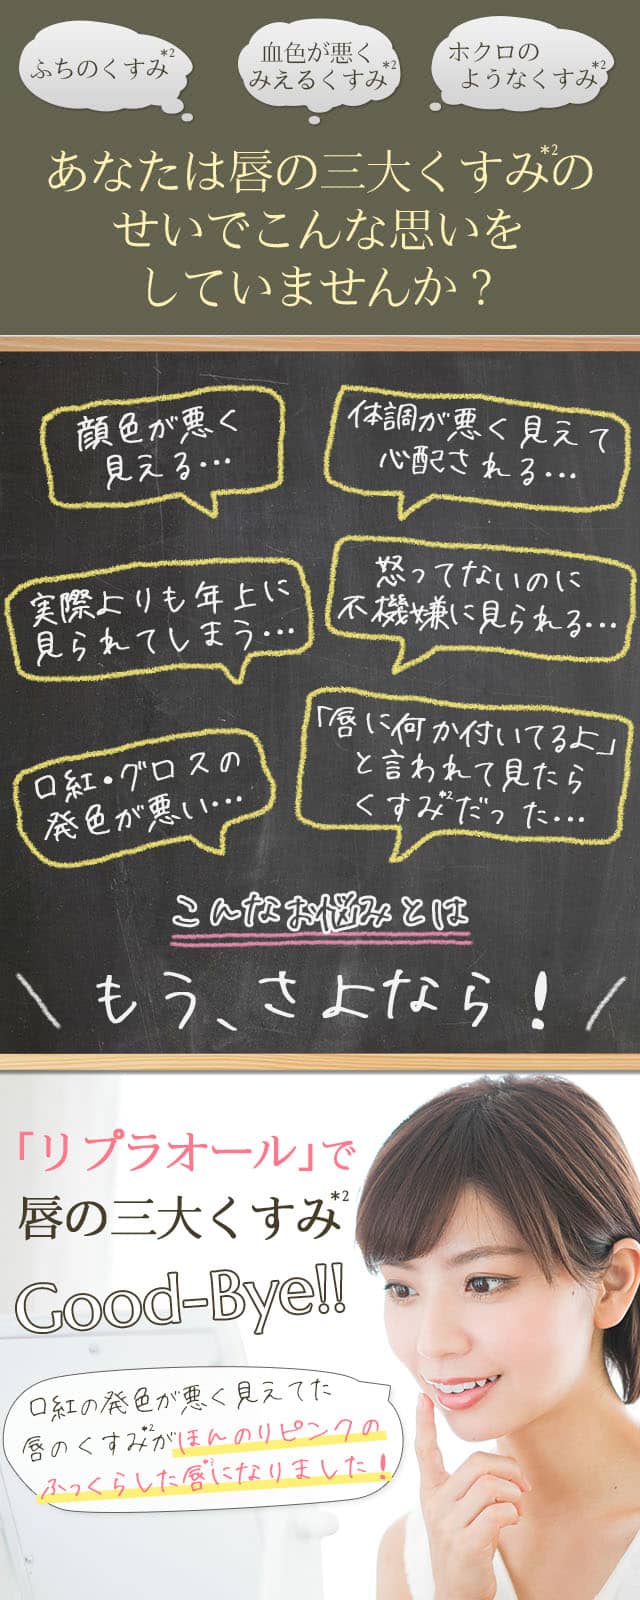 ふちのくすみ*2
血色が悪く
みえるくすみ*2
ホクロの
ようなくすみ*2
あなたは唇の三大くすみ*2の
せいでこんな思いを
していませんか？
顔色が悪く
見える…
体調が悪く見えて
心配される…
実際よりも年上に
見られてしまう…
怒ってないのに
不機嫌に見られる…
口紅・グロスの
発色が悪い…
「唇に何か付いてるよ」
と言われて見たら
くすみ*2だった…
こんなお悩みとは
\ もう、さよなら！ /
「リプラオール」で
唇の三大くすみ*2
Good-Bye!!
口紅の発色が悪く見えてた
唇のくすみ*2がほんのりピンクの
ふっくらした唇になりました！